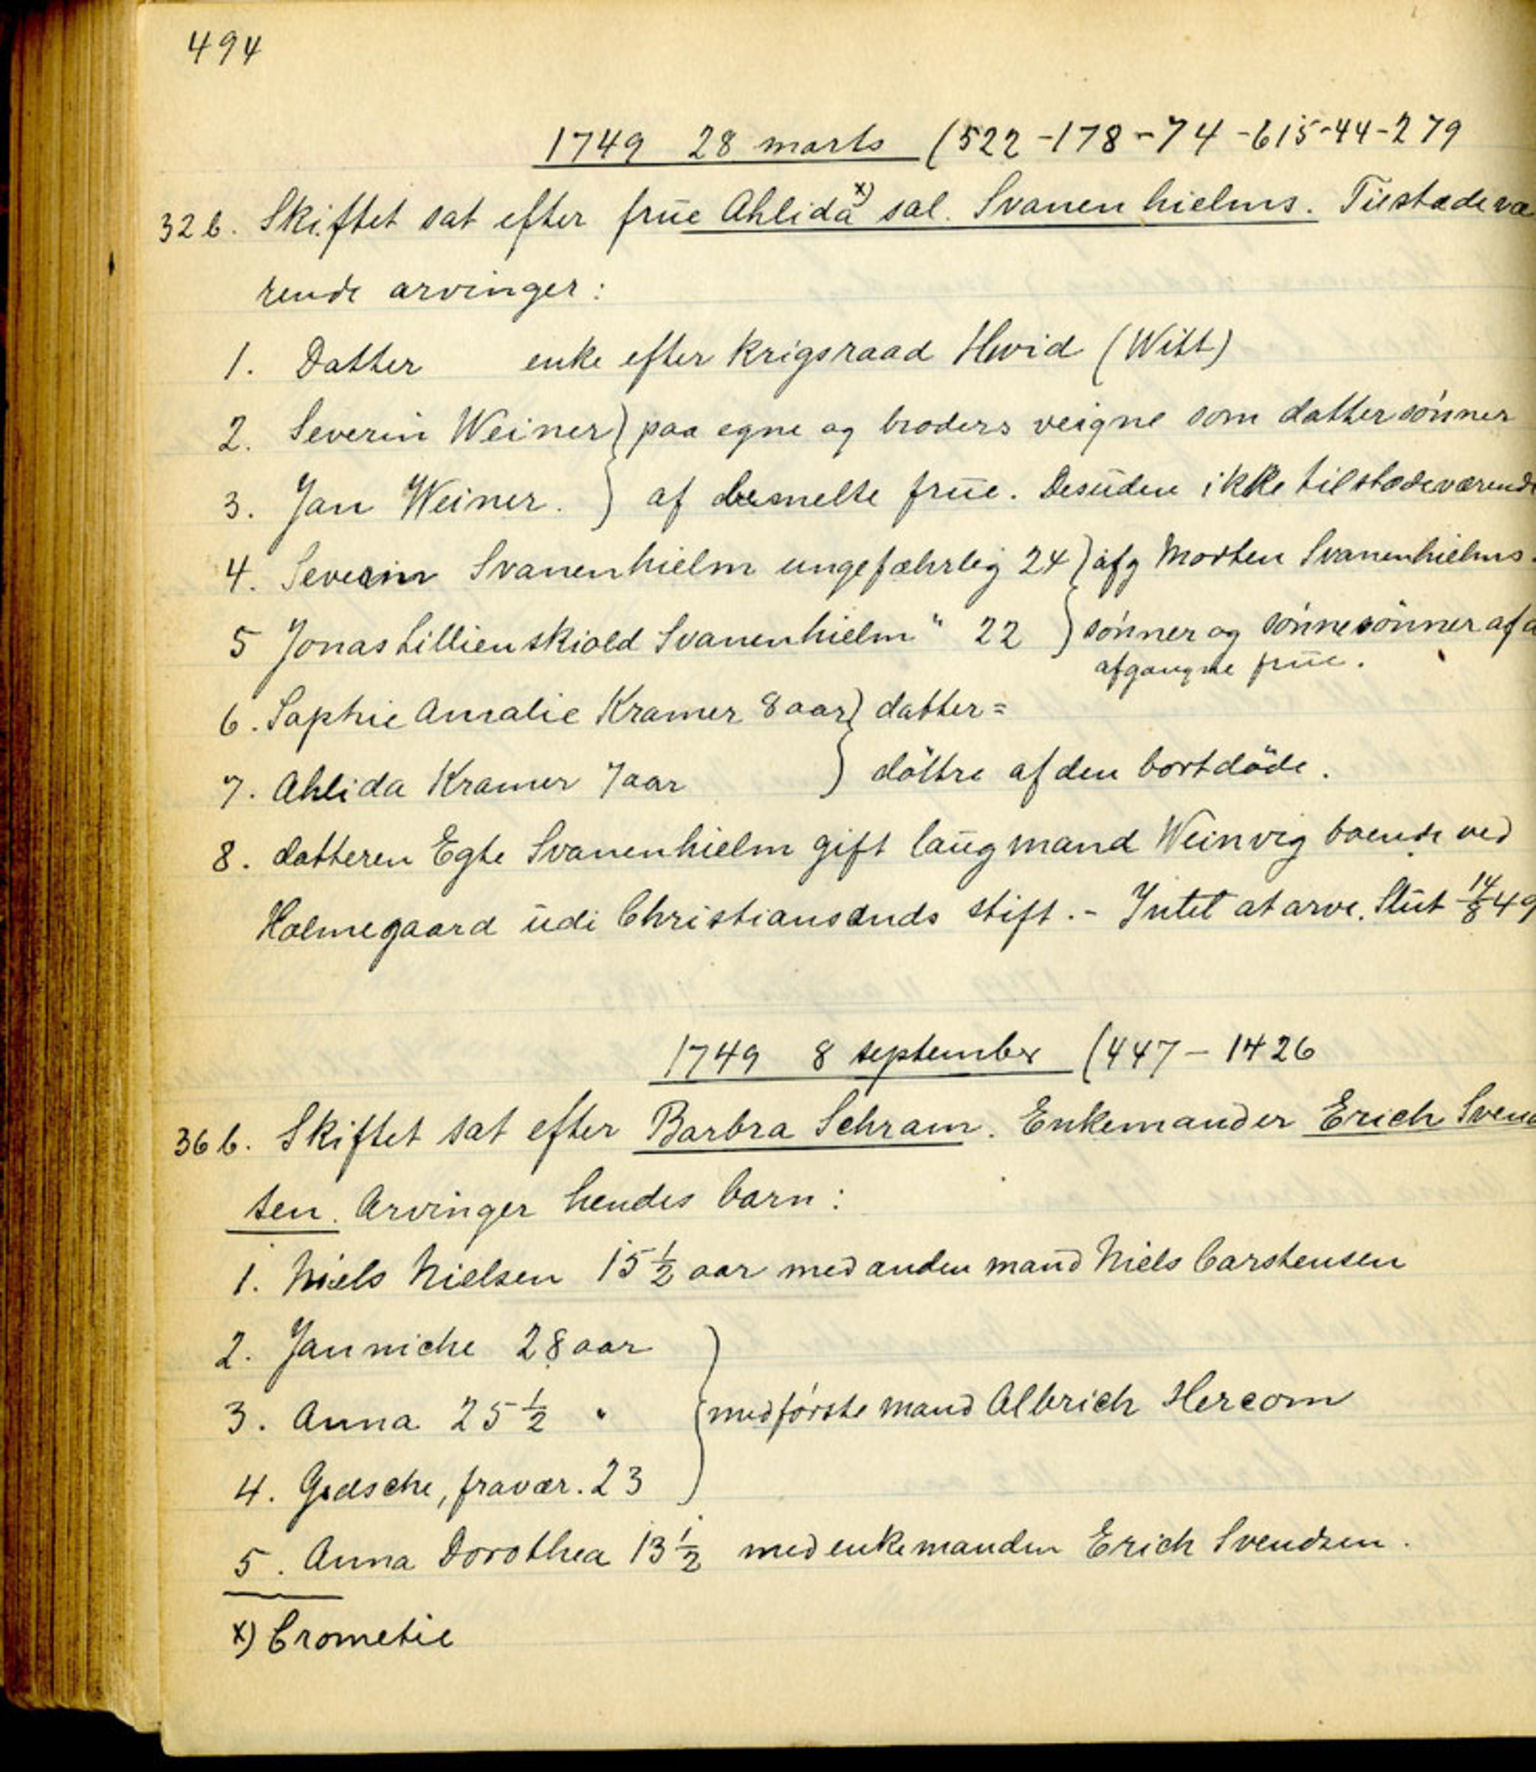 494
1749 28 marts (522-178-74-615-44-279
32 b. Skiftet sat efter frue Ahlida x) sal. Svanenhielms. Tilstædevæ
rende arvinger:
1. Datter enke efter krigsraad Hwid (Witt)
2. Severin Weiner) paa egne og broders veigne som dattersønner
3. Jan Weiner. } af bemelte frue. Desuden ikke tilstædeværende
4. Severin Svanenhielm ungefæhrlig 24) afg Morten Svanenhielms
5 Jonas Lillienskiold Svanenhielm " 22 } sønner og sønnesønner af d
afgangne frue.
6. Sophie Amalie Kramer 8 aar) datter=
7. Ahlida Kramer 7 aar } døttre af den bortdøde.
8. datteren Egte Svanenhielm gift laugmand Weinvig boende ved
Holmegaard udi Christiansands stift. - Intet at arve. Slut 14/8 49
1749 8 september (447-1426
36 b. Skiftet sat efter Barbra Schram. Enkemanden Erich Svend
sen. Arvinger hendes barn:
1. Niels Nielsen 15 1/2 aar med anden mand Niels Carstensen
2. Janniche 28 aar
3. Anna 25 1/2 " } med første mand Albrich Hercom
4. Giedsche, fravær. 23
5. Anna Dorothea 13 1/2 med enkemanden Erich Svendsen.
x) Crometie